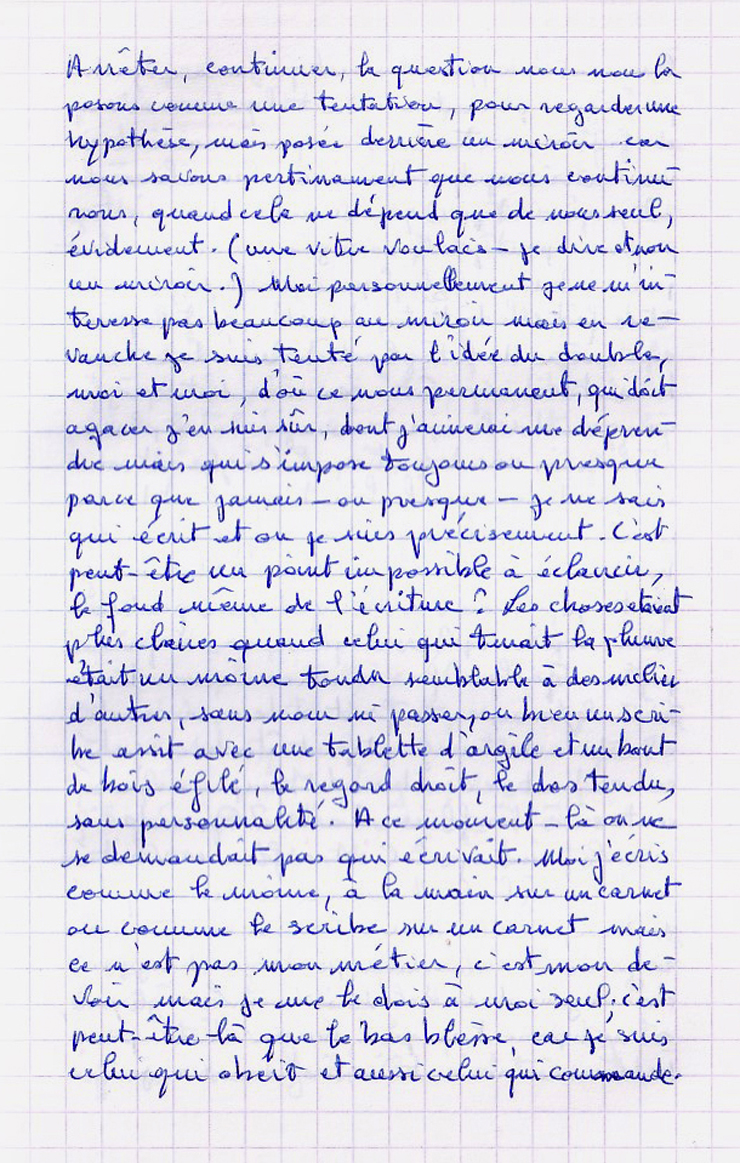 Arrêter, continuer, la question nous nous la
posons comme une tentation, pour regarder une
hypothèse, mais posée derrière un miroir car
nous savons pertinament que nous continue-
rons, quand cela ne dépend que de nous seul,
évidement. (une vitre voulais-je dire et non
un miroir.) Moi personnellement je ne m'in-
terresse pas beaucoup au miroir mais en re-
vanche je suis tenté par l'idée du double,
moi et moi, d'où ce nous permanent, qui doit
agacer j'en suis sûr, dont j'aimerai me dépren-
dre mais qui s'impose toujours ou presque
parce que jamais - ou presque - je ne sais
qui écrit et où je suis précisement. C'est
peut-être un point impossible à éclaircir,
le fond même de l'écriture ? Les choses étaient
plus claires quand celui qui tenait la plume
était un moine tondu semblable à des milliers
d'autres, sans nom ni passé, ou bien un scri-
be assit avec une tablette d'argile et un bout
de bois éfilé, le regard droit, le dos tendu,
sans personnalité. A ce moment-là on ne
se demandait pas qui écrivait. Moi j'écris
comme le moine, à la main sur un carnet
ou comme le scribe sur un carnet mais
ce n'est pas mon métier, c'est mon de-
voir mais je me le dois à moi seul; c'est
peut-être là que le bas blesse, car je suis
celui qui obeit et aussi celui qui commande.